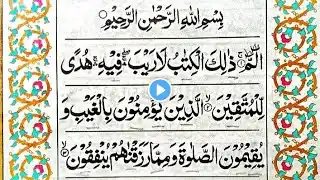 بِسْمِ اللهِ الرَّحْمٰنِ الرَّحِيْمِ
الٓمّٓ ۚ ذٰلِكَ الْكِتٰبُ لَا رَيْبَ ۛ فِيْهِ ۛ هُدًى
لِّلْمُتَّقِيْنَ ۙ الَّذِيْنَ يُؤْمِنُوْنَ بِالْغَيْبِ وَ
يُقِيْمُوْنَ الصَّلٰوةَ وَمِمَّا رَزَقْنٰهُمْ يُنْفِقُوْنَ ۙ